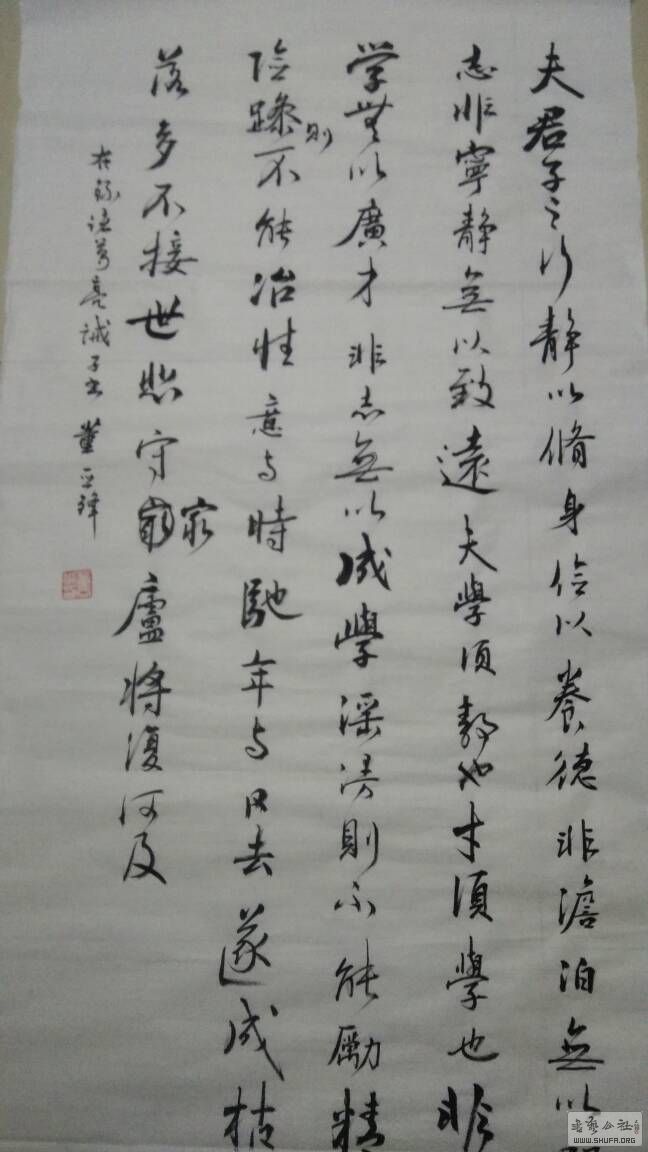 夫君子之行静以脩身俭以養德非澹泊無以
志非寧静無以致遠夫學須静也才須學也非
学無以廣才非志無以成學滛漫則不能勵精
险躁则不能冶性意与時馳年与日去遂成枯
落多不接世悲守窮廬将復何及
右録諸葛亮誡子书 董
书艺公社
WWW.SHUFA.ORG